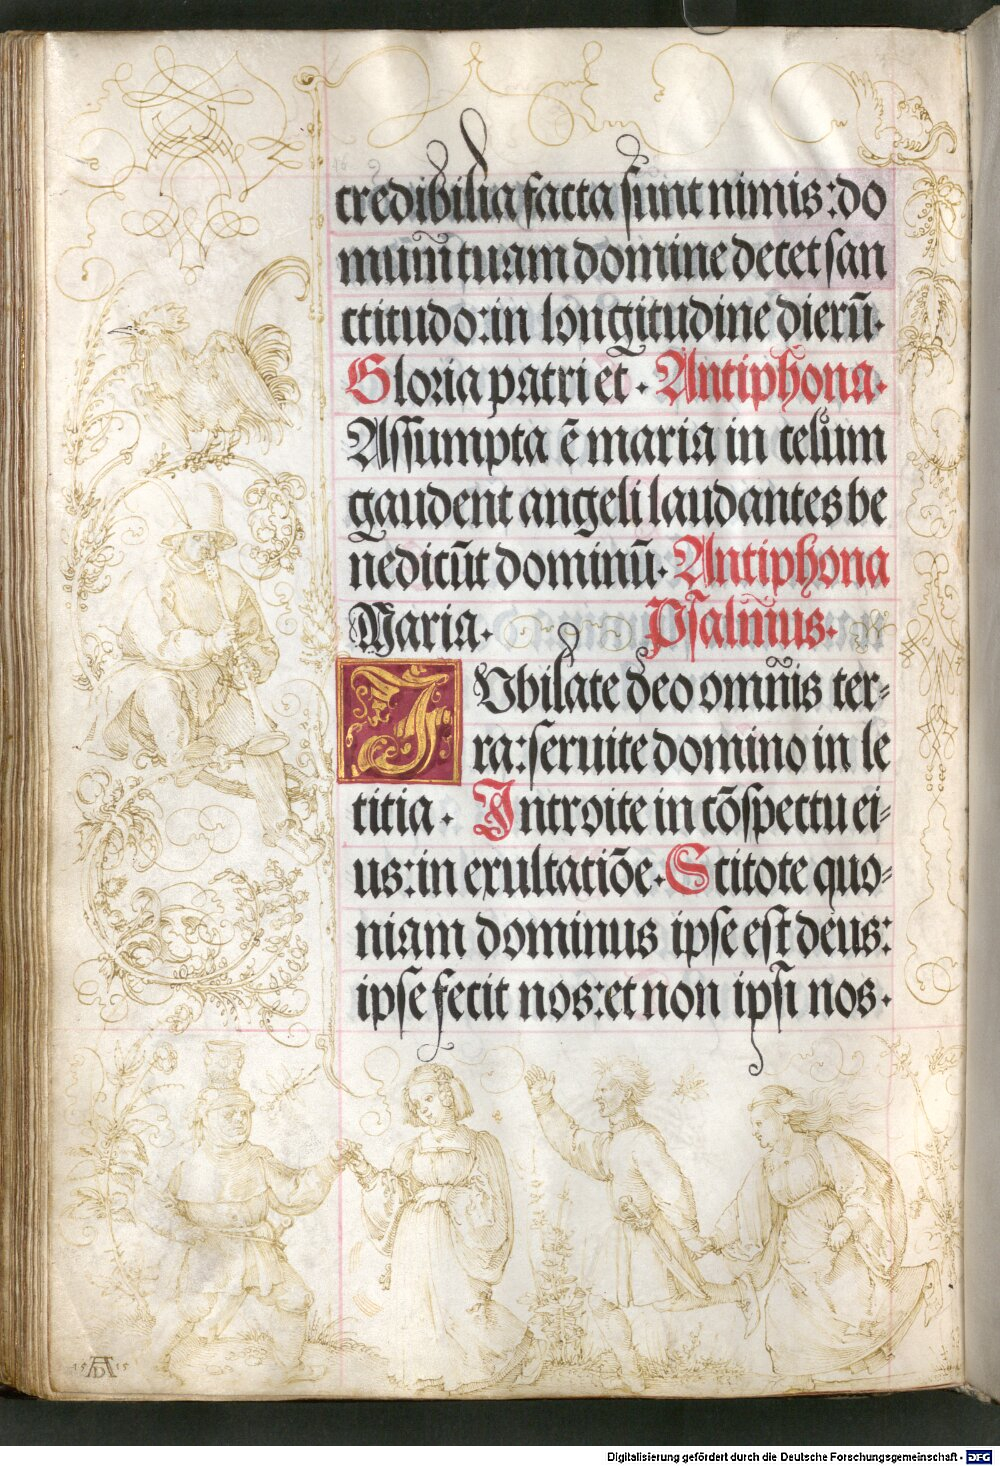 credibilia facta sunt nimis: do
mum̃ tuam domine decet san
ctitudo: in longitudine dierũ.
Gloria patri et. Antiphona.
Assumpta ẽ maria in celum
gaudent angeli laudantes be
nedicũt dominũ. Antiphona
Maria. Psalm̃us.
IVbilate deo omñis ter-
ra: seruite domino in le
titia. Introite in cõspectu ei-
us: in exultatiõe. Scitote quo-
niam dominus ipse est deus:
ipse fecit nos: et non ipsi nos.
15 AD 15
Digitalisierung gefördert durch die Deutsche Forschungsgemeinschaft - DFG